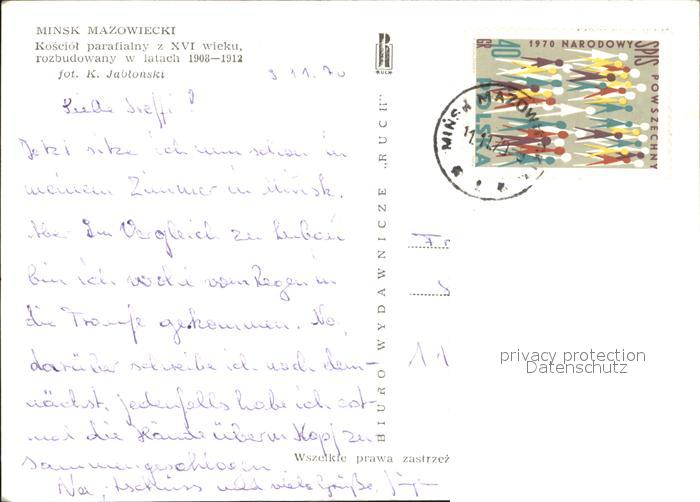 MIŃSK MAZOWIECKI
Kościół parafialny z XVI wieku,
rozbudowany w latach 1908—1912
fot. K. Jabłoński
9 11. 70
Liebe Steffi!
Jetzt sitze ich nun schon in
meinem Zimmer in Mińsk.
Aber Im Vergleich zu Lubań
bin ich vom Regen in
die Traufe gekommen. Na,
darüber schreibe ich noch dem-
nächst, jedenfalls habe ich erst-
mal die Hände überm Kopf zu-
sammengeschlagen.
Na, tschüss und viele Grüße,
BIURO WYDAWNICZE „RUCH”
RUCH
Wszelkie prawa zastrzeż
1970 NARODOWY SPIS POWSZECHNY
40 GR
POLSKA
MIŃSK MAZOW
11
privacy protection
Datenschutz